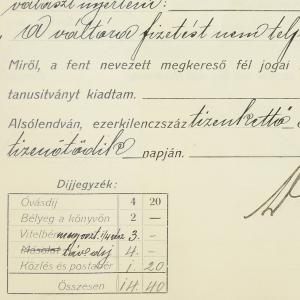 választ nyertem:
A váltóra fizetést nem telj
Miről, a fent nevezett megkereső fél jogai
tanusitványt kiadtam.
Alsólendván, ezerkilenczszáz tizenkettő
tizenötödik napján.
Dijjegyzék:
Óvásdij 4 20
Bélyeg a könyvön 2 —
Vitelbér 3 -
Másolat Távdij 4 -
Közlés és postabér 1 20
Összesen 14 40